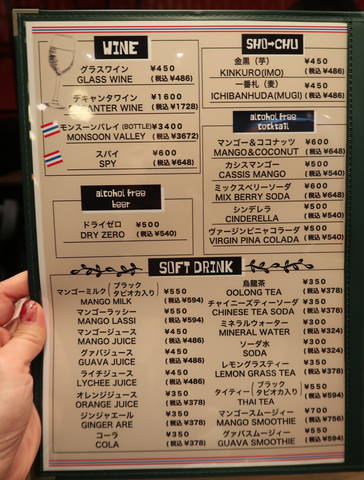 WINE
グラスワイン ¥450
GLASS WINE (税込 ¥486)
デキャンタワイン ¥1600
DECANTER WINE (税込 ¥1728)
モンスーンバレイ (BOTTLE) ¥3400
MONSOON VALLEY (税込 ¥3672)
スパイ ¥600
SPY (税込 ¥648)
alcohol free
beer
ドライゼロ ¥500
DRY ZERO (税込 ¥540)
SHO-CHU
金黒(芋) ¥450
KINKURO(IMO) (税込 ¥486)
一番札(麦) ¥450
ICHIBANHUDA(MUGI) (税込 ¥486)
alcohol free
cocktail
マンゴー&ココナッツ ¥600
MANGO&COCONUT (税込 ¥648)
カシスマンゴー ¥500
CASSIS MANGO (税込 ¥540)
ミックスベリーソーダ ¥600
MIX BERRY SODA (税込 ¥648)
シンデレラ ¥500
CINDERELLA (税込 ¥540)
ヴァージンピニャコラーダ ¥500
VIRGIN PINA COLADA (税込 ¥540)
SOFT DRINK
マンゴーミルク(ブラックタピオカ入り) ¥550
MANGO MILK (税込 ¥594)
マンゴーラッシー ¥550
MANGO LASSI (税込 ¥594)
マンゴージュース ¥450
MANGO JUICE (税込 ¥486)
グァバジュース ¥450
GUAVA JUICE (税込 ¥486)
ライチジュース ¥450
LYCHEE JUICE (税込 ¥486)
オレンジジュース ¥350
ORANGE JUICE (税込 ¥378)
ジンジャエール ¥350
GINGER ARE (税込 ¥378)
コーラ ¥350
COLA (税込 ¥378)
烏龍茶 ¥350
OOLONG TEA (税込 ¥378)
チャイニーズティーソーダ ¥350
CHINESE TEA SODA (税込 ¥378)
ミネラルウォーター ¥300
MINERAL WATER (税込 ¥324)
ソーダ水 ¥300
SODA (税込 ¥324)
レモングラスティー ¥350
LEMON GRASS TEA (税込 ¥378)
タイティー(ブラックタピオカ入り) ¥550
THAI TEA (税込 ¥594)
マンゴースムージー ¥700
MANGO SMOOTHIE (税込 ¥756)
グァバスムージー ¥550
GUAVA SMOOTHIE (税込 ¥594)